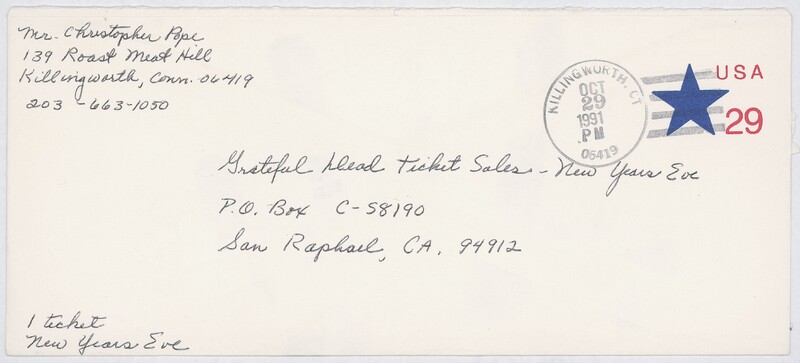 Mr. Christopher Pope
139 Roast Meat Hill
Killingworth, Conn. 06419
203-663-1050
KILLINGWORTH, CT
OCT
29
1991
PM
06419
USA
29
Grateful Dead Ticket Sales - New Years Eve
P.O. Box C-S8190
San Raphael, CA. 94912
1 ticket
New Years Eve